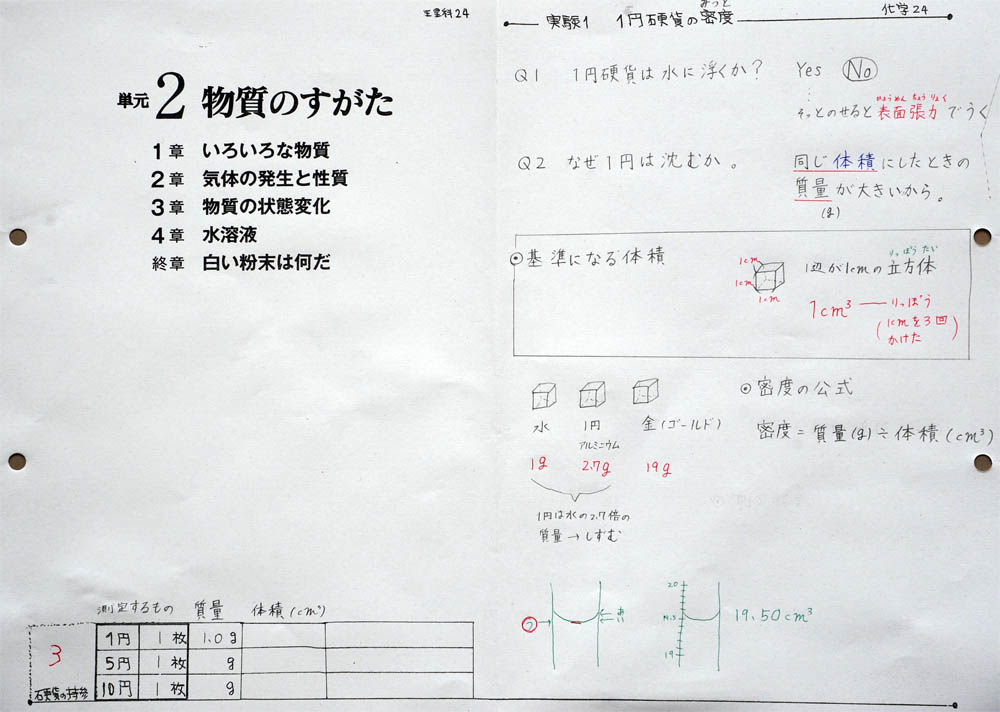 理科24
単元 2 物質のすがた
1章 いろいろな物質
2章 気体の発生と性質
3章 物質の状態変化
4章 水溶液
終章 白い粉末は何だ
測定するもの 質量 体積(cm³)
3
硬貨の持参
1円 1枚 1.0g
5円 1枚 g
10円 1枚 g
化学24
みつど
実験1 1円硬貨の密度
Q1 1円硬貨は水に浮くか? Yes No
ひょうめん ちょうりょく
そっとのせると表面張力でうく
Q2 なぜ1円は沈むか。
同じ体積にしたときの
質量が大きいから。
(g)
⊙基準になる体積
1cm
1cm
1cm
りっぽうたい
1辺が1cmの立方体
1cm³ りっぽう
(1cmを3回
かけた)
水 1円 金(ゴールド)
アルミニウム
1g 2.7g 19g
1円は水の2.7倍の
質量→しずむ
⊙密度の公式
密度=質量(g)÷体積(cm³)
20
19.5
19
19.50cm³